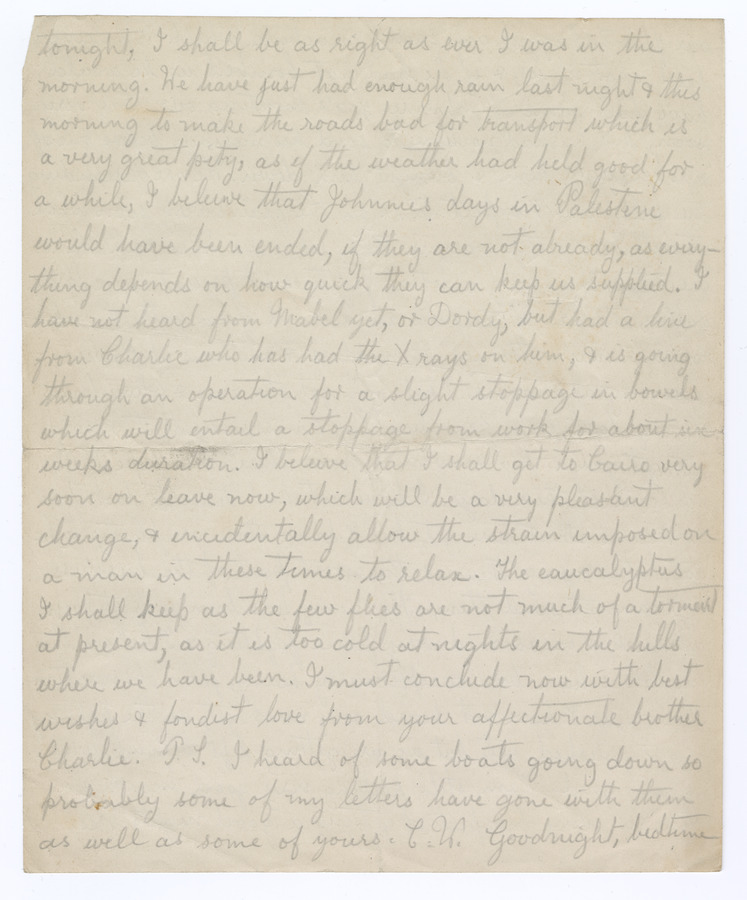 tonight, I shall be as right as ever I was in the
morning. We have just had enough rain last night & this
morning to make the roads bad for transport which is
a very great pity, as if the weather had held good for
a while, I beleive that Johnnies days in Palestine
would have been ended, if they are not already, as every-
thing depends on how quick they can keep us supplied. I
have not heard from Mabel yet, or Dordy, but had a line
from Charlie who has had the X rays on him, & is going
through an operation for a slight stoppage in bowels
which will entail a stoppage from work for about six
weeks duration. I beleive that I shall get to Cairo very
soon on leave now, which will be a very pleasant
change, & incidentally allow the strain imposed on
a man in these times to relax. The eaucalyptus
I shall keep as the few flies are not much of a torment
at present, as it is too cold at nights in the hills
where we have been. I must conclude now with best
wishes & fondist love from your affectionate brother
Charlie. P.S. I heard of some boats going down so
probably some of my letters have gone with them
as well as some of yours. C.W. Goodnight, bedtime